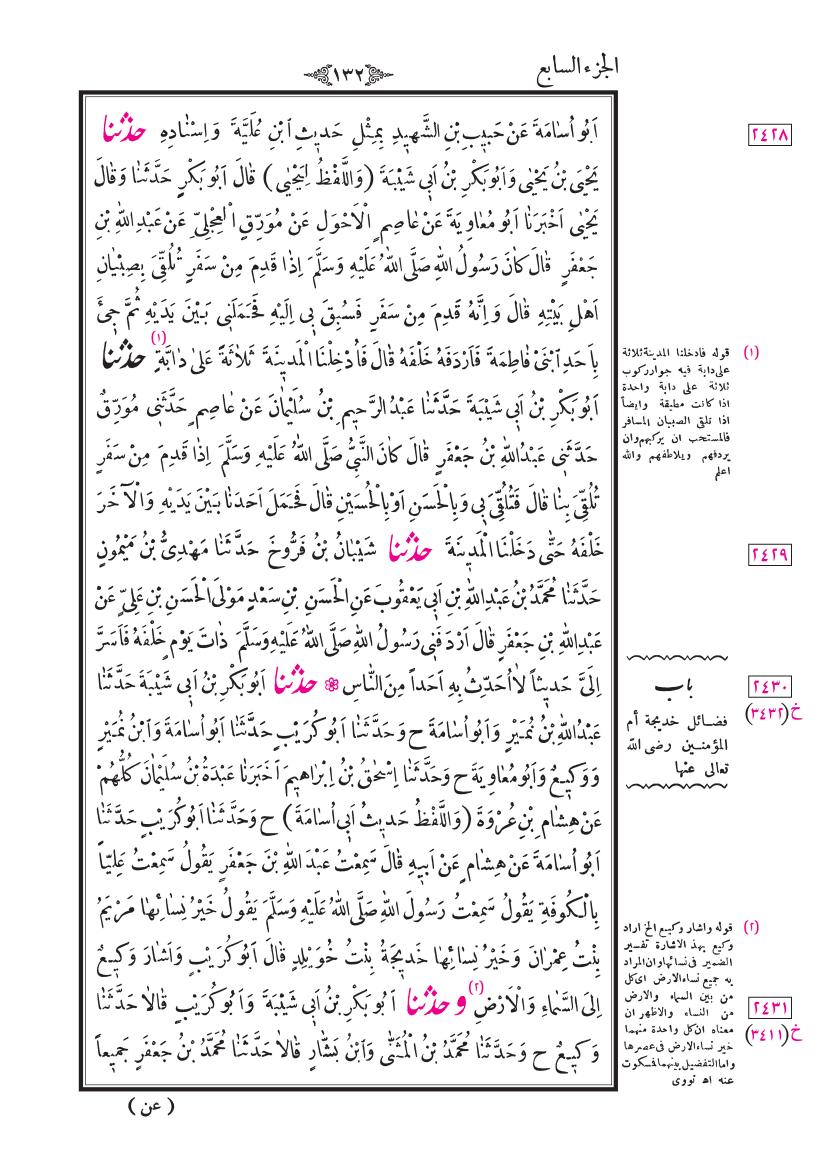 الجزء السابع
١٣٢
اَبُو اُسَامَةَ عَنْ حَبِيبِ بْنِ الشَّهِيدِ بِمِثْلِ حَدِيثِ ابْنِ عُلَيَّةَ وَاِسْنَادِهِ حَدَّثَنَا
يَحْيَى بْنُ يَحْيٰى وَاَبُو بَكْرِ بْنُ اَبِى شَيْبَةَ (وَاللَّفْظُ لِيَحْيٰى) قَالَ اَبُو بَكْرٍ حَدَّثَنَا وَقَالَ
يَحْيٰى اَخْبَرَنَا اَبُو مُعَاوِيَةَ عَنْ عَاصِمٍ الْاَحْوَلِ عَنْ مُوَرِّقٍ الْعِجْلِيِّ عَنْ عَبْدِ اللهِ بْنِ
جَعْفَرٍ قَالَ كَانَ رَسُولُ اللهِ صَلَّى اللهُ عَلَيْهِ وَسَلَّمَ اِذَا قَدِمَ مِنْ سَفَرٍ تُلُقِّىَ بِصِبْيَانِ
اَهْلِ بَيْتِهِ قَالَ وَاِنَّهُ قَدِمَ مِنْ سَفَرٍ فَسُبِقَ بِى اِلَيْهِ فَحَمَلَنِى بَيْنَ يَدَيْهِ ثُمَّ جِىءَ
بِاَحَدِ ابْنَىْ فَاطِمَةَ فَاَرْدَفَهُ خَلْفَهُ قَالَ فَاُدْخِلْنَا الْمَدِينَةَ ثَلَاثَةً عَلىٰ دَابَّةٍ (١) حَدَّثَنَا
اَبُو بَكْرِ بْنُ اَبِى شَيْبَةَ حَدَّثَنَا عَبْدُ الرَّحِيمِ بْنُ سُلَيْمَانَ عَنْ عَاصِمٍ حَدَّثَنِى مُوَرِّقٌ
حَدَّثَنِى عَبْدُ اللهِ بْنُ جَعْفَرٍ قَالَ كَانَ النَّبِىُّ صَلَّى اللهُ عَلَيْهِ وَسَلَّمَ اِذَا قَدِمَ مِنْ سَفَرٍ
تُلُقِّىَ بِنَا قَالَ فَتُلُقِّىَ بِى وَبِالْحَسَنِ اَوْ بِالْحُسَيْنِ قَالَ فَحَمَلَ اَحَدَنَا بَيْنَ يَدَيْهِ وَالْآخَرَ
خَلْفَهُ حَتّٰى دَخَلْنَا الْمَدِينَةَ حَدَّثَنَا شَيْبَانُ بْنُ فَرُّوخَ حَدَّثَنَا مَهْدِىُّ بْنُ مَيْمُونٍ
حَدَّثَنَا مُحَمَّدُ بْنُ عَبْدِ اللهِ بْنِ اَبِى يَعْقُوبَ عَنِ الْحَسَنِ بْنِ سَعْدٍ مَوْلَى الْحَسَنِ بْنِ عَلِيٍّ عَنْ
عَبْدِ اللهِ بْنِ جَعْفَرٍ قَالَ اَرْدَفَنِى رَسُولُ اللهِ صَلَّى اللهُ عَلَيْهِ وَسَلَّمَ ذَاتَ يَوْمٍ خَلْفَهُ فَاَسَرَّ
اِلَىَّ حَدِيثاً لَا اُحَدِّثُ بِهِ اَحَداً مِنَ النَّاسِ ❁ حَدَّثَنَا اَبُو بَكْرِ بْنُ اَبِى شَيْبَةَ حَدَّثَنَا
عَبْدُ اللهِ بْنُ نُمَيْرٍ وَاَبُو اُسَامَةَ ح وَحَدَّثَنَا اَبُو كُرَيْبٍ حَدَّثَنَا اَبُو اُسَامَةَ وَابْنُ نُمَيْرٍ
وَوَكِيعٌ وَاَبُو مُعَاوِيَةَ ح وَحَدَّثَنَا اِسْحٰقُ بْنُ اِبْرَاهِيمَ اَخْبَرَنَا عَبْدَةُ بْنُ سُلَيْمَانَ كُلُّهُمْ
عَنْ هِشَامِ بْنِ عُرْوَةَ (وَاللَّفْظُ حَدِيثُ اَبِى اُسَامَةَ) ح وَحَدَّثَنَا اَبُو كُرَيْبٍ حَدَّثَنَا
اَبُو اُسَامَةَ عَنْ هِشَامٍ عَنْ اَبِيهِ قَالَ سَمِعْتُ عَبْدَ اللهِ بْنَ جَعْفَرٍ يَقُولُ سَمِعْتُ عَلِيّاً
بِالْكُوفَةِ يَقُولُ سَمِعْتُ رَسُولَ اللهِ صَلَّى اللهُ عَلَيْهِ وَسَلَّمَ يَقُولُ خَيْرُ نِسَائِهَا مَرْيَمُ
بِنْتُ عِمْرَانَ وَخَيْرُ نِسَائِهَا خَدِيجَةُ بِنْتُ خُوَيْلِدٍ قَالَ اَبُو كُرَيْبٍ وَاَشَارَ وَكِيعٌ
اِلَى السَّمَاءِ وَالْاَرْضِ (٢) وَحَدَّثَنَا اَبُو بَكْرِ بْنُ اَبِى شَيْبَةَ وَاَبُو كُرَيْبٍ قَالَا حَدَّثَنَا
وَكِيعٌ ح وَحَدَّثَنَا مُحَمَّدُ بْنُ الْمُثَنّٰى وَابْنُ بَشَّارٍ قَالَا حَدَّثَنَا مُحَمَّدُ بْنُ جَعْفَرٍ جَمِيعاً
(عن)
٢٤٢٨
(١) قوله فادخلنا المدينة ثلاثة
على دابة فيه جواز ركوب
ثلاثة على دابة واحدة
اذا كانت مطيقة وايضاً
اذا تلقى الصبيان المسافر
فالمستحب ان يركبهم وان
يردفهم ويلاطفهم والله
اعلم
٢٤٢٩
٢٤٣٠
خ(٣٤٣٢)
باب
فضائل خديجة أم
المؤمنين رضى الله
تعالى عنها
(٢) قوله واشار وكيع الخ اراد
وكيع بهذ الاشارة تفسير
الضمير فى نسائها وان المراد
به جميع نساء الارض اى كل
من بين السماء والارض
من النساء والاظهر ان
معناه ان كل واحدة منهما
خير نساء الارض فى عصرها
واما التفضيل بينهما فمسكوت
عنه اه نووى
٢٤٣١
خ(٣٤١١)